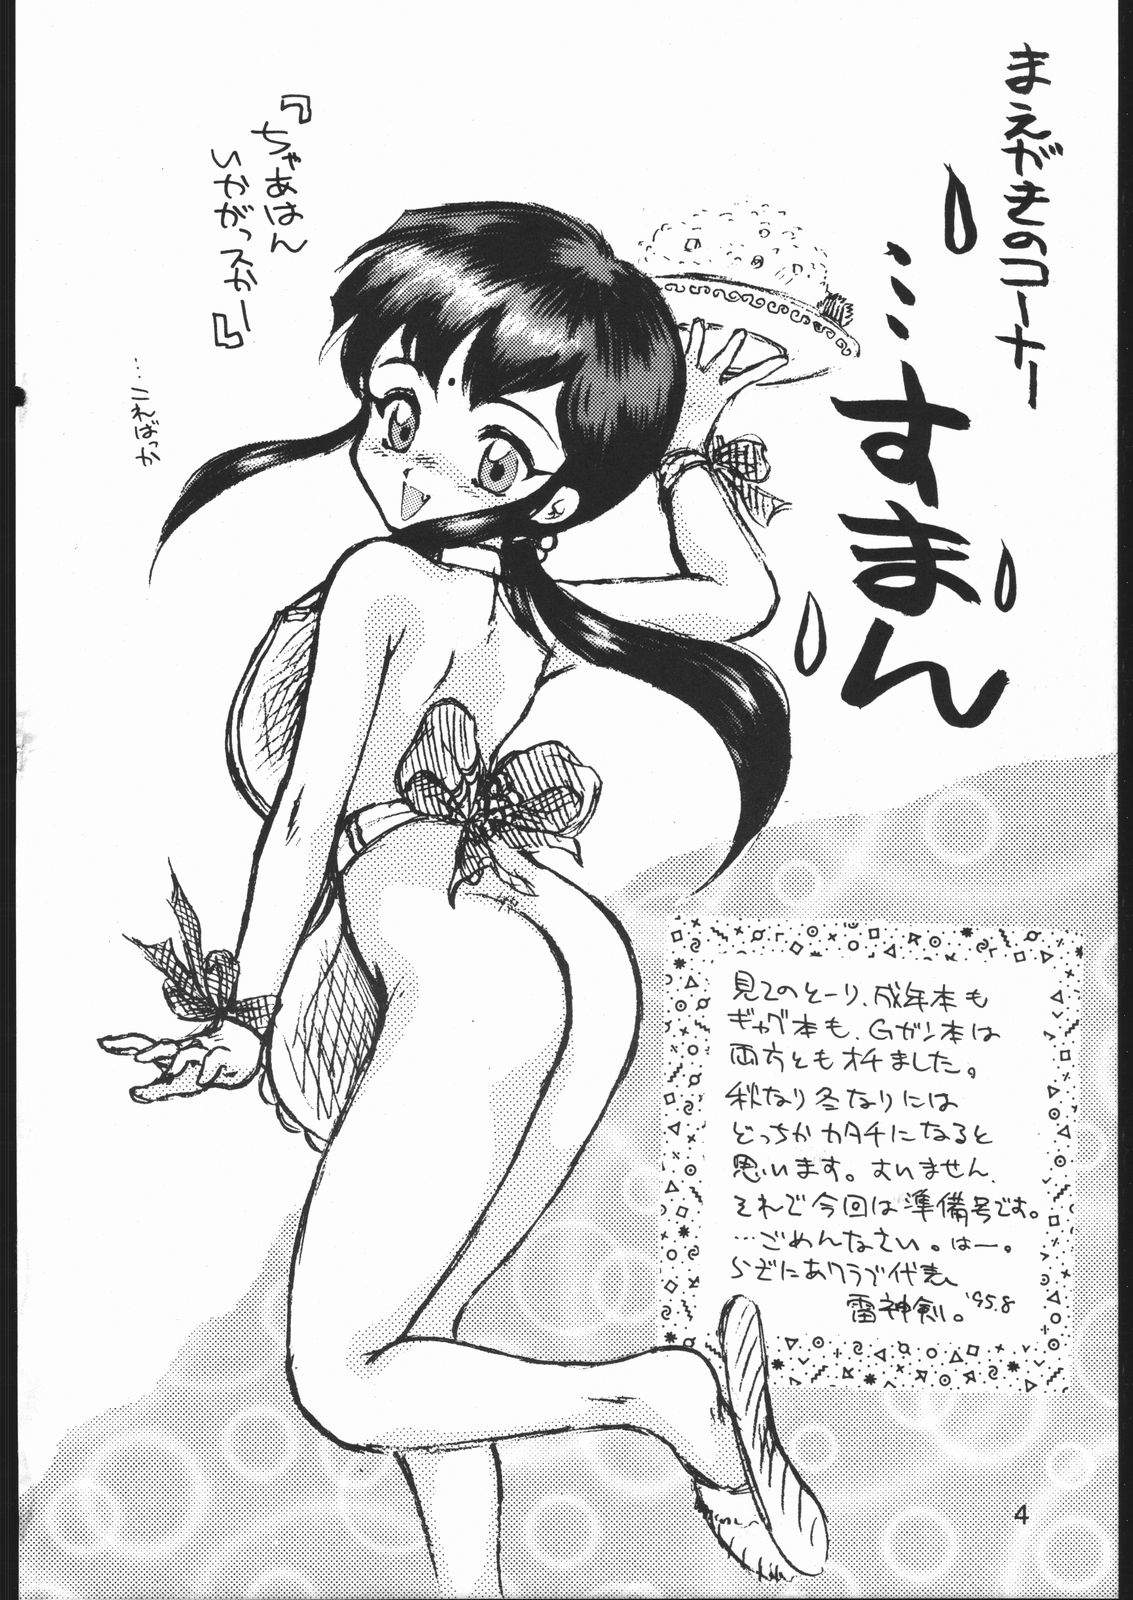 まえがきのコーナー
…すまん
『ちゃあはん
いかがっスかー』
…こればっか
見てのとーり、成年本も
ギャグ本も、Gガン本は
両方ともオチました。
秋なり冬なりには
どっちかカタチになると
思います。すいません、
それで今回は準備号です。
…ごめんなさい。はー。
らぞにあクラブ代表
雷神剣。'95.8
4